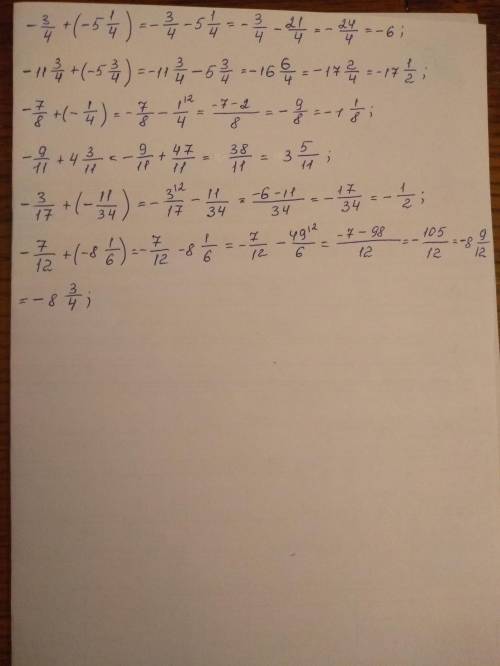 -3/4 + (-5 1/4) = -3/4 - 5 1/4 = -3/4 - 21/4 = -24/4 = -6;
-11 3/4 + (-5 3/4) = -11 3/4 - 5 3/4 = -16 6/4 = -17 2/4 = -17 1/2;
-7/8 + (-1/4) = -7/8 - 1^12/4 = (-7-2)/8 = -9/8 = -1 1/8;
-9/11 + 4 3/11 = -9/11 + 47/11 = 38/11 = 3 5/11;
-3/17 + (-11/34) = -3^12/17 - 11/34 = (-6-11)/34 = -17/34 = -1/2;
-7/12 + (-8 1/6) = -7/12 - 8 1/6 = -7/12 - 49^12/6 = (-7-98)/12 = -105/12 = -8 9/12
= -8 3/4;